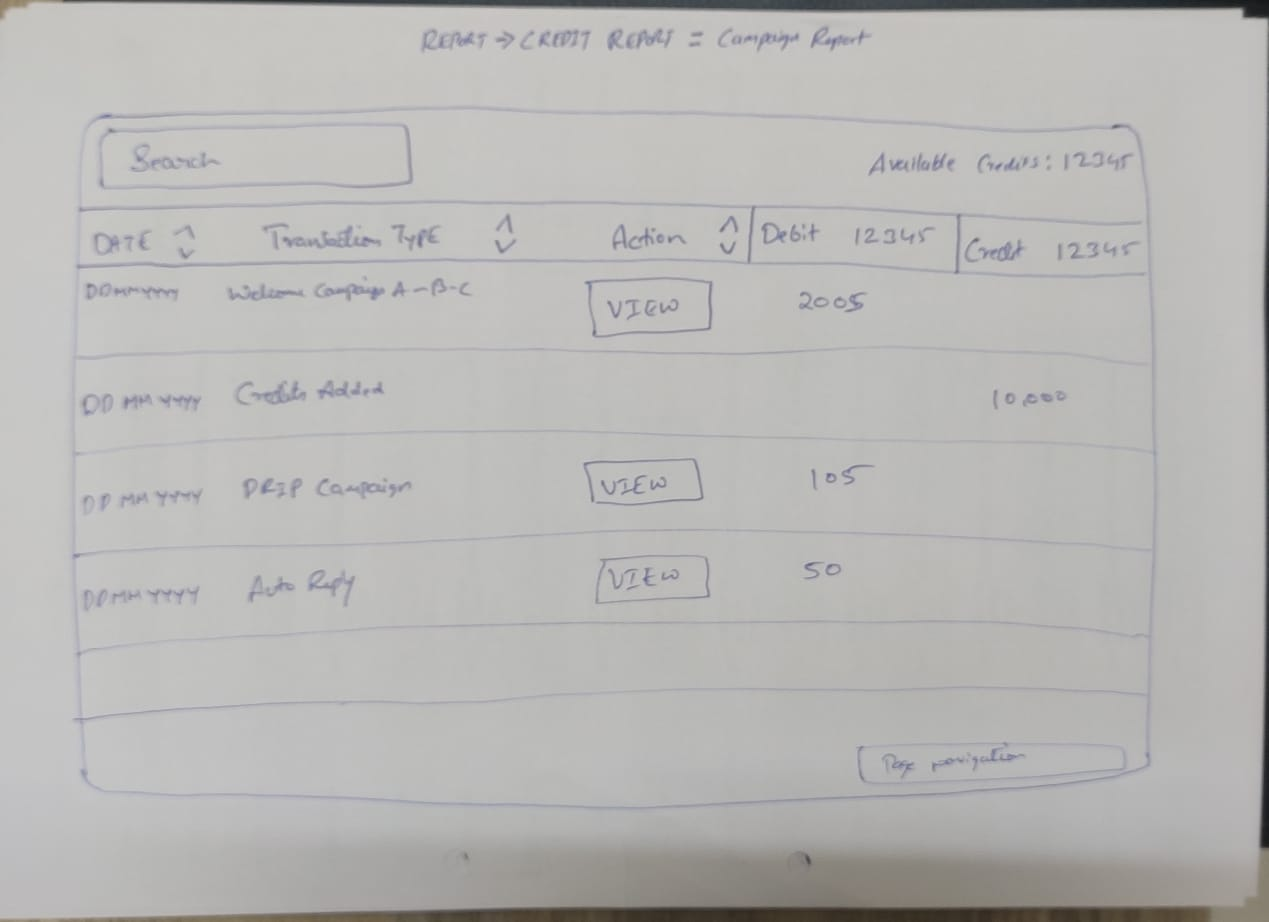 REPORT → CREDIT REPORT = Campaign Report
Search
Available Credits: 12345
DATE Transaction TYPE Action Debit 12345 Credit 12345
DDMMYYYY Welcome Campaign A-B-C VIEW 2005
DD MM YYYY Credits Added 10,000
DD MM YYYY DRIP Campaign VIEW 105
DDMMYYYY Auto Reply VIEW 50
Page navigation